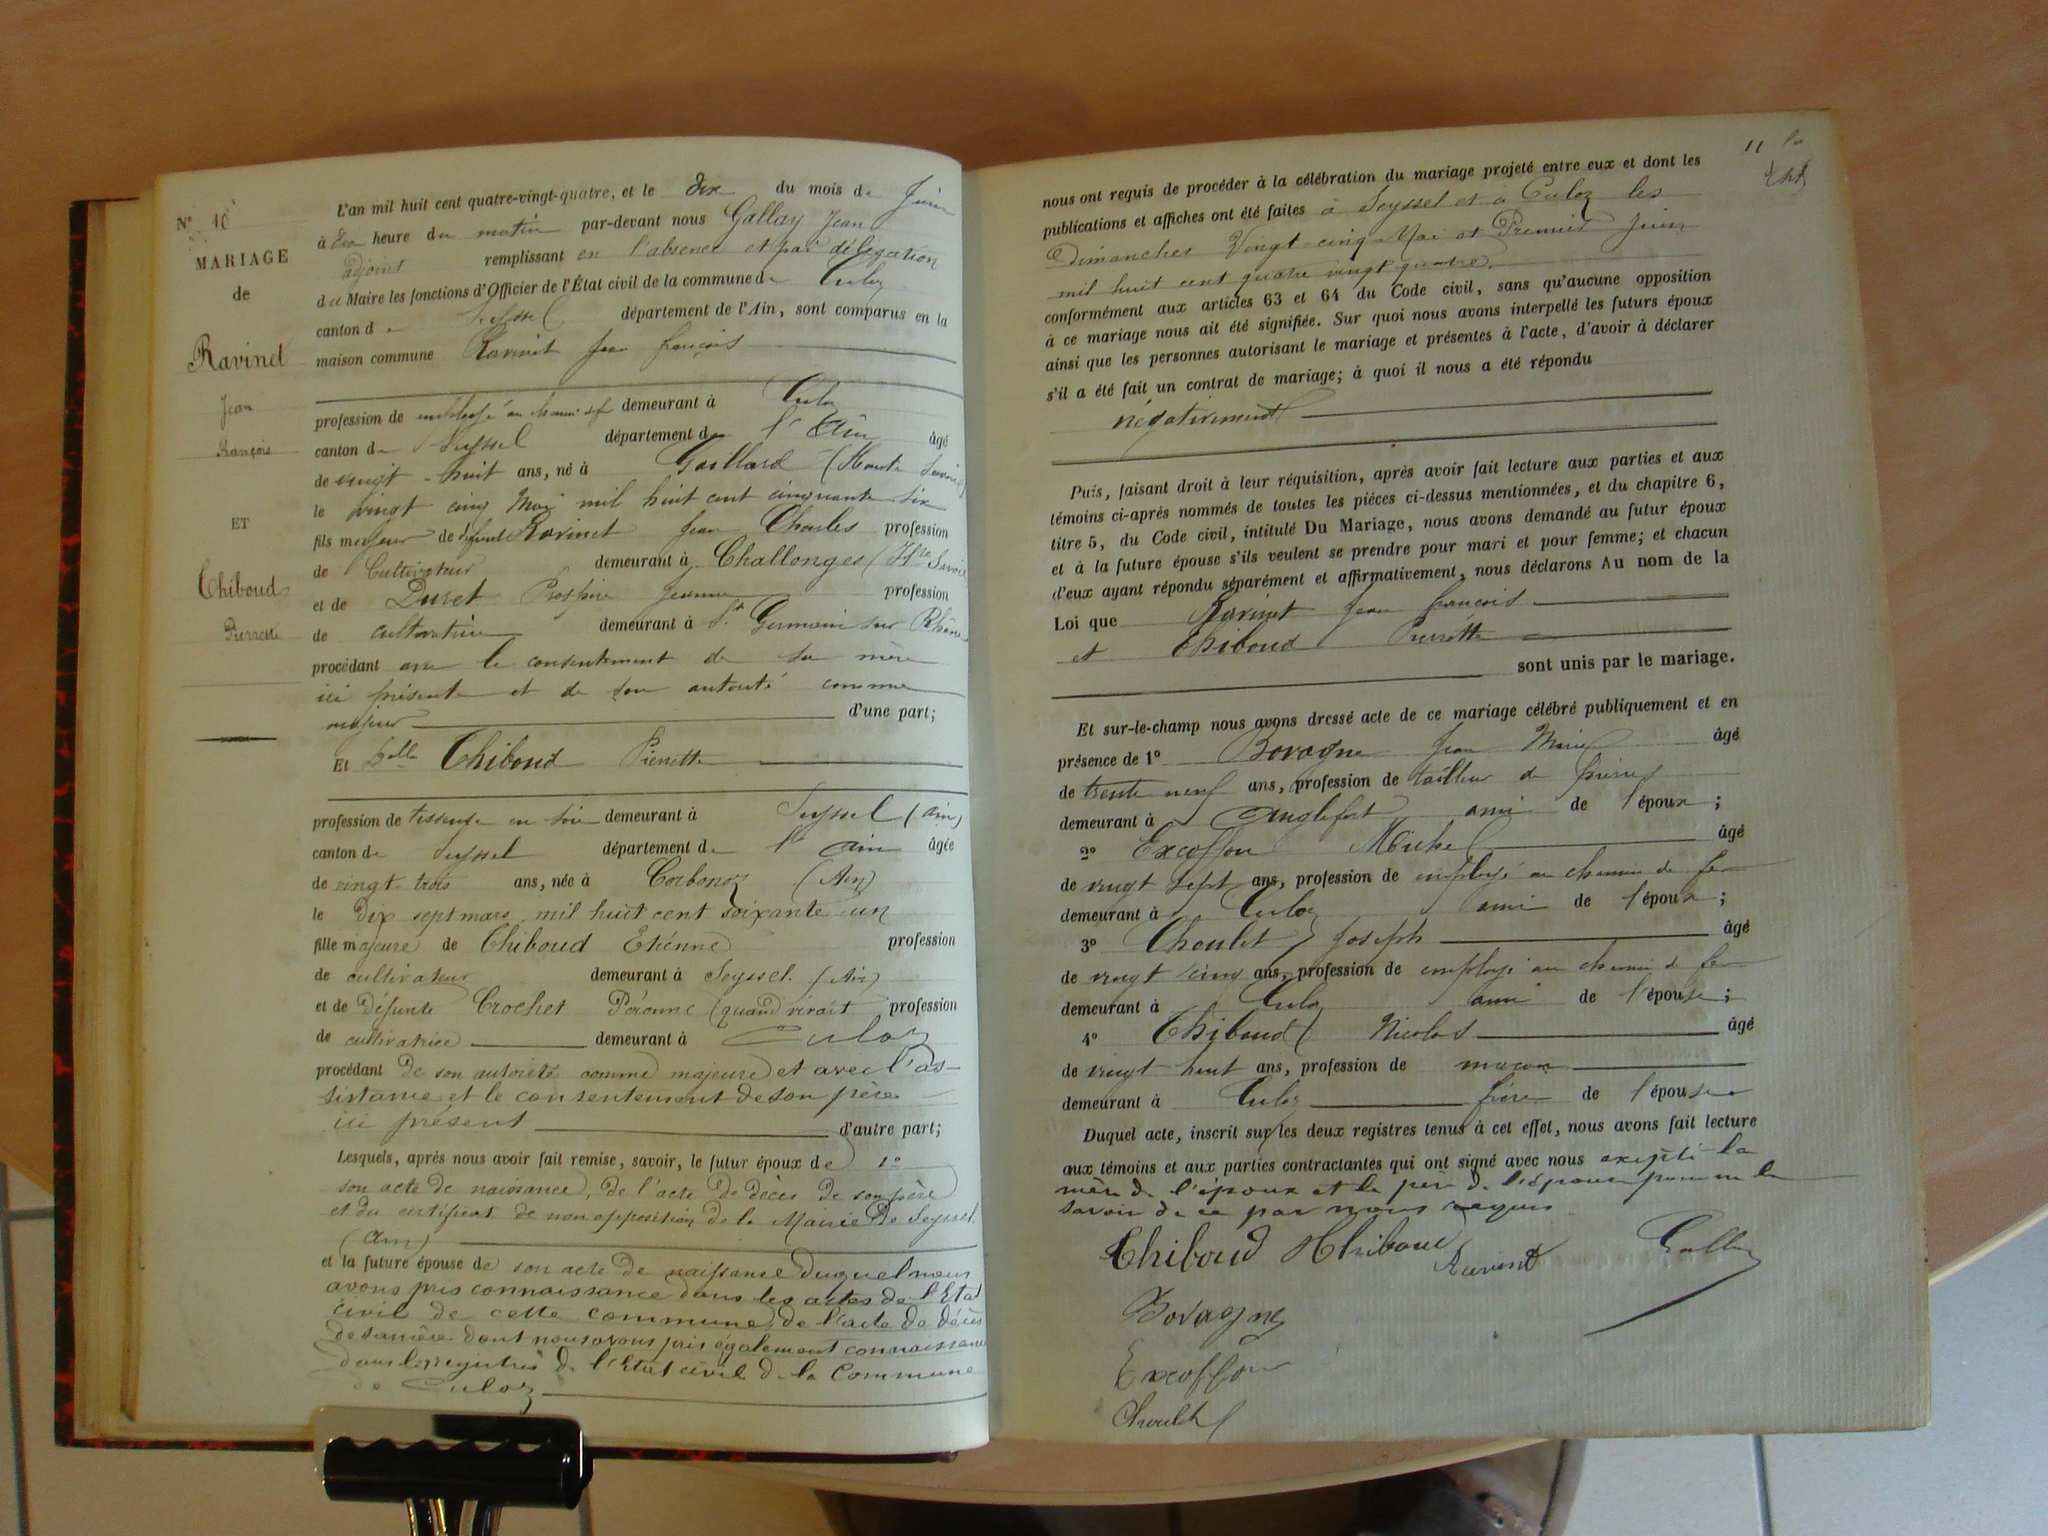 N° 10
MARIAGE
de
Ravinet
Jean
François
ET
Thiboud
Pierrette
L'an mil huit cent quatre-vingt-quatre, et le dix du mois de Juin
à dix heure du matin par-devant nous Gallay Jean
adjoint remplissant en l'absence et par délégation
du Maire les fonctions d'Officier de l'État civil de la commune de Culoz
canton de Seyssel département de l'Ain, sont comparus en la
maison commune Ravinet Jean françois
profession de employé au chemin de f demeurant à Culoz
canton de Seyssel département de l'Ain âgé
de vingt-huit ans, né à Gaillard (Haute Savoie)
le vingt cinq Mai mil huit cent cinquante six
fils majeur de défunt Ravinet Jean Charles profession
de Cultivateur demeurant à Challonges (Hte Savoie
et de Duret Prospère Jeanne profession
de cultivatrice demeurant à St Germain sur Rhône
procédant avec le consentement de sa mère
ici présente et de son autorité comme
majeur d'une part;
Et Delle Thiboud Pierrette
profession de tisseuse en soie demeurant à Seyssel (Ain)
canton de Seyssel département de l'Ain âgée
de vingt-trois ans, née à Corbonoz (Ain)
le dix sept mars mil huit cent soixante un
fille majeure de Thiboud Etienne profession
de cultivateur demeurant à Seyssel (Ain)
et de Défunte Crochet Péronne (quand vivait profession
de cultivatrice demeurant à Culoz
procédant de son autorité comme majeure et avec l'as-
sistance et le consentement de son père
ici présent d'autre part;
Lesquels, après nous avoir fait remise, savoir, le futur époux de 1°
son acte de naissance, de l'acte de décès de son père
et du certificat de non opposition de la Mairie de Seyssel
(Ain)
et la future épouse de son acte de naissance duquel nous
avons pris connaissance dans les actes de l'Etat
civil de cette commune, de l'acte de décès
de sa mère dont nous avons pris également connaissance
dans les registres de l'Etat civil de la Commune
de Culoz
11
nous ont requis de procéder à la célébration du mariage projeté entre eux et dont les
publications et affiches ont été faites à Seyssel et à Culoz les
Dimanches Vingt-cinq Mai et Premier Juin
mil huit cent quatre vingt quatre
conformément aux articles 63 et 64 du Code civil, sans qu'aucune opposition
à ce mariage nous ait été signifiée. Sur quoi nous avons interpellé les futurs époux
ainsi que les personnes autorisant le mariage et présentes à l'acte, d'avoir à déclarer
s'il a été fait un contrat de mariage; à quoi il nous a été répondu
négativement
Puis, faisant droit à leur réquisition, après avoir fait lecture aux parties et aux
témoins ci-après nommés de toutes les pièces ci-dessus mentionnées, et du chapitre 6,
titre 5, du Code civil, intitulé Du Mariage, nous avons demandé au futur époux
et à la future épouse s'ils veulent se prendre pour mari et pour femme; et chacun
d'eux ayant répondu séparément et affirmativement, nous déclarons Au nom de la
Loi que Ravinet Jean françois
et Thiboud Pierrette
sont unis par le mariage.
Et sur-le-champ nous avons dressé acte de ce mariage célébré publiquement et en
présence de 1° Bovagne Jean Marie âgé
de trente neuf ans, profession de tailleur de pierres
demeurant à Anglefort ami de l'époux;
2° Excoffon Michel âgé
de vingt sept ans, profession de employé au chemin de fer
demeurant à Culoz ami de l'époux;
3° Choulet Joseph âgé
de vingt cinq ans, profession de employé au chemin de fer
demeurant à Culoz ami de l'épouse;
4° Thiboud Nicolas âgé
de vingt huit ans, profession de maçon
demeurant à Culoz frère de l'épouse
Duquel acte, inscrit sur les deux registres tenus à cet effet, nous avons fait lecture
aux témoins et aux parties contractantes qui ont signé avec nous excepté la
mère de l'époux et le père de l'épouse pour ne le
savoir de ce par nous requis
Thiboud Thiboud Ravinet Gallay
Bovagne
Excoffon
Choulet